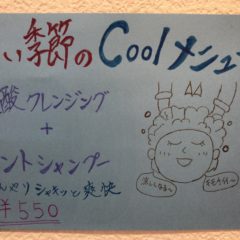 い季節の Cool メニュー
酸クレンジング
+
ントシャンプー
んやりシャキッと爽快
¥550
涼しくなる〜